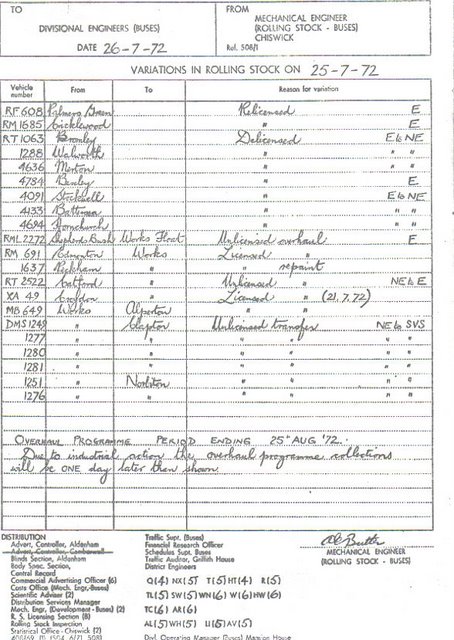 TO
DIVISIONAL ENGINEERS (BUSES)
DATE 26-7-72
FROM
MECHANICAL ENGINEER
(ROLLING STOCK - BUSES)
CHISWICK
Ref. 508/1
VARIATIONS IN ROLLING STOCK ON 25-7-72
Vehicle number From To Reason for variation
RF 608 Palmers Green Relicensed E
RM 1685 Cricklewood " E
RT 1063 Bromley Delicensed E to NE
1288 Walworth " " "
4636 Merton " " "
4784 Bexley " E
4091 Stockwell " E to NE
4133 Battersea " " "
4694 Hornchurch " " "
RML 2272 Shepherds Bush Works Float Unlicensed overhaul E
RM 691 Edmonton Works Licensed "
1637 Peckham " " repaint
RT 2522 Catford " Unlicensed " NE to E
XA 49 Croydon " Licensed " (21.7.72)
MB 649 Works Alperton
DMS 1249 " Clapton Unlicensed transfer NE to SVS
1277 " " " " " "
1280 " " " " " "
1281 " " " " " "
1251 " Norbiton " " " "
1276 " " " " " "
OVERHAUL PROGRAMME PERIOD ENDING 25th AUG '72.
Due to industrial action the overhaul programme collections
will be ONE day later than shown.
DISTRIBUTION
Advert. Controller, Aldenham
Advert. Controller, Camberwell
Blinds Section, Aldenham
Body Spec. Section,
Central Record
Commercial Advertising Officer (6)
Costs Office (Mech. Engr.-Buses)
Scientific Adviser (2)
Distribution Services Manager
Mech. Engr. (Development - Buses) (2)
R. S. Licensing Section (8)
Rolling Stock Inspection
Statistical Office - Chiswick (2)
Traffic Supt. (Buses)
Financial Research Officer
Schedules Supt. Buses
Traffic Auditor, Griffith House
District Engineers
Q(4) NX(5) T(5) HT(4) R(5)
TL(5) SW(5) WN(6) W(6) HW(6)
TC(6) AR(6)
AL(5) WH(5) U(5) AV(5)
Divl. Operating Manager (Buses) Mansion House
MECHANICAL ENGINEER
(ROLLING STOCK - BUSES)